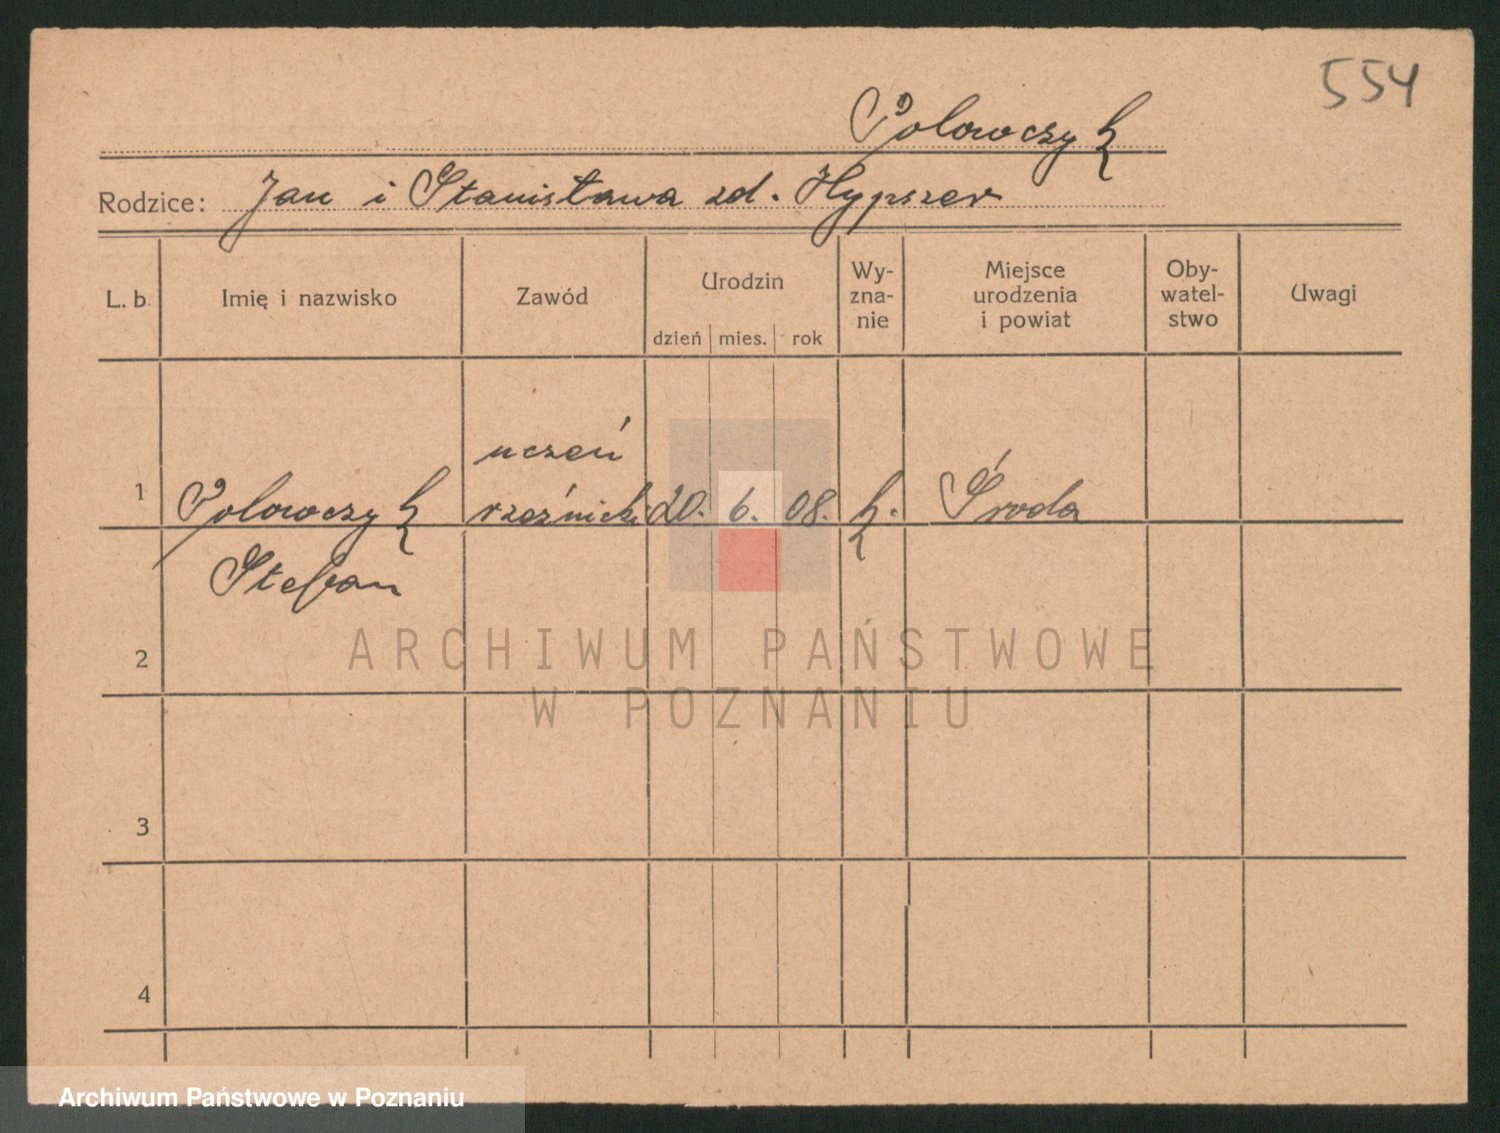 554
Polowczyk
Rodzice: Jan i Stanisława zd. Hypszer
L. b.
Imię i nazwisko
Zawód
Urodzin
dzień
mies.
rok
Wy-
zna-
nie
Miejsce
urodzenia
i powiat
Oby-
watel-
stwo
Uwagi
1
Polowczyk
Stefan
uczeń
rzeźnicki
20.
6.
08.
k.
Środa
2
3
4
ARCHIWUM PAŃSTWOWE
W POZNANIU
Archiwum Państwowe w Poznaniu